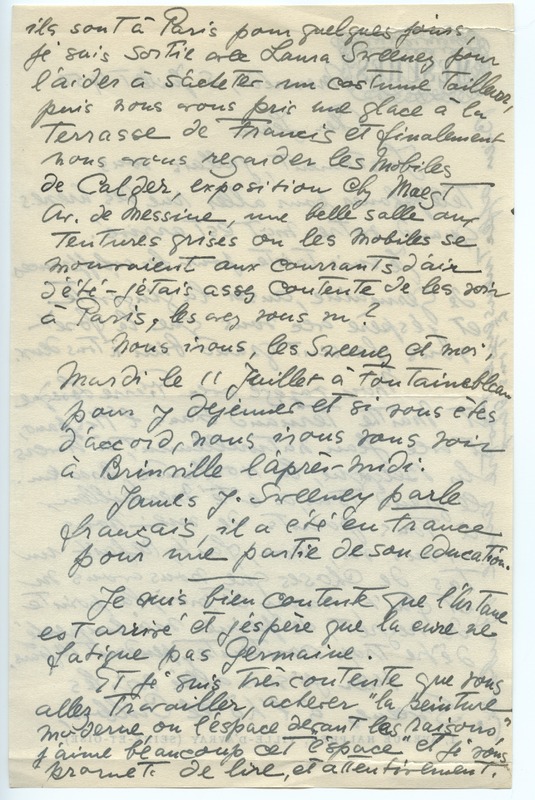 ils sont à Paris pour quelques jours,
je suis sortie avec Laura Sweeney pour
l'aider à s'acheter un costume tailleur,
puis nous avons pris une glace à la
terrasse de Francis et finalement
nous avons regarder les Mobiles
de Calder, exposition chez Maegt
Av. de Messine, une belle salle aux
tentures grises ou les mobiles se
mouvaient aux courrants d'air
d'été - j'étais assez contente de les voir
à Paris, les avez vous vu ?
Nous irons, les Sweeney et moi,
Mardi le 11 Juillet à Fontainebleau
pour y déjeuner et si vous êtes
d'accord, nous irons vous voir
à Brinville l'après-midi.
James J. Sweeney parle
français, il a été en France
pour une partie de son éducation.
Je suis bien contente que l'
est arrivé et j'éspère que la cure ne
fatigue pas Germaine.
Et je suis très contente que vous
allez travailler, achever "la peinture
moderne ou l'éspace devant les raisons,"
j'aime beaucoup cet "éspace" et je vous
promets de lire, et attentivement.